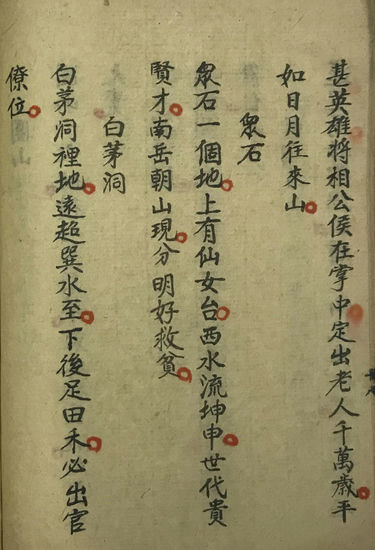 甚英雄将相公侯在掌中定出老人千萬歲平
如日月往來山
眾石
眾石一個地上有仙女台西水流坤申世代貴
賢才南岳朝山現分明好救貧
白茅洞
白茅洞裡地遠超巽水至下後足田禾必出官
僚位